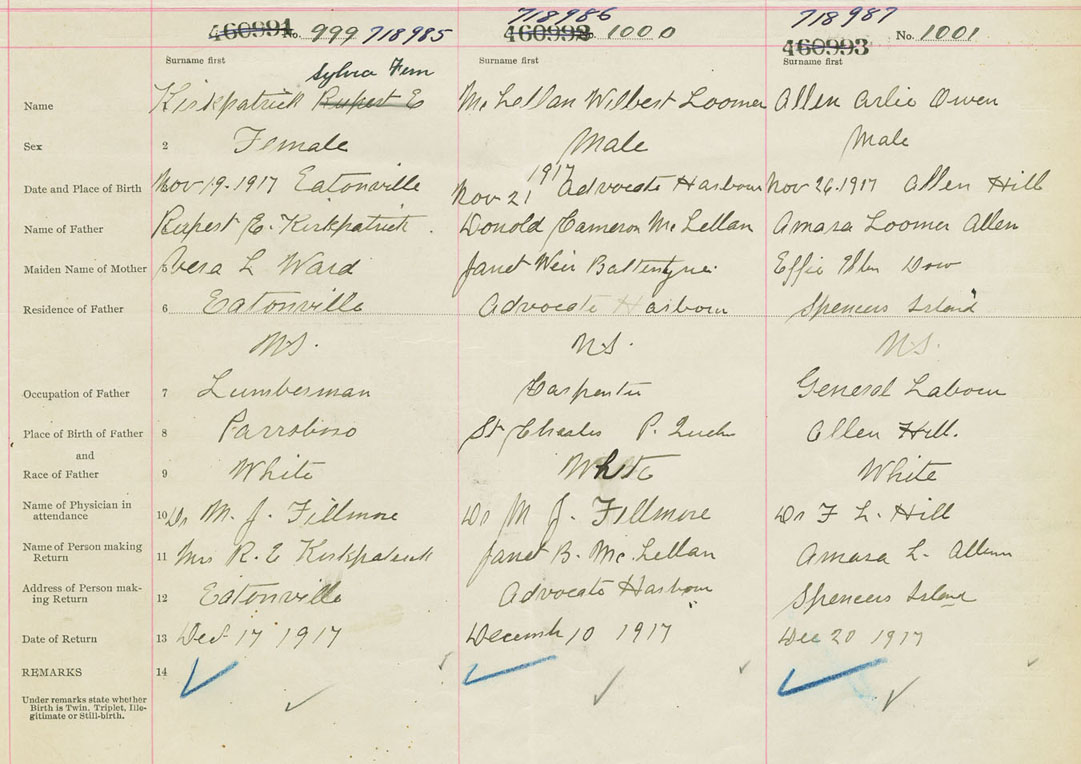 460991 No. 999 718985 718986 460992 No. 1000 718987 460993 No. 1001
Surname first Surname first Surname first
Sylvia Fern
Name Kirkpatrick Rupert E McLellan Wilbert Loomer Allen Arlie Owen
Sex 2 Female Male Male
Date and Place of Birth Nov 19. 1917 Eatonville Nov 21 1917 Advocate Harbour Nov 26. 1917 Allen Hill
Name of Father Rupert E. Kirkpatrick. Donold Cameron McLellan Amasa Loomer Allen
Maiden Name of Mother 5 Vera L Ward Janet Weir Effie Dow
Residence of Father 6 Eatonville Advocate Harbour Spencers Island
N.S. N.S. N.S.
Occupation of Father 7 Lumberman Carpenter General Labour
Place of Birth of Father 8 Parrsboro St Charles P. Allen Hill.
and
Race of Father 9 White White White
Name of Physician in
attendance 10 Dr M. J. Fillmore Dr M J. Fillmore Dr F L. Hill
Name of Person making
Return 11 Mrs R. E Kirkpatrick Janet B. McLellan Amasa L. Allen
Address of Person mak-
ing Return 12 Eatonville Advocate Harbour Spencers Island
Date of Return 13 Dec 17 1917 December 10 1917 Dec 20 1917
REMARKS 14
Under remarks state whether
Birth is Twin, Triplet, Ille-
gitimate or Still-birth.